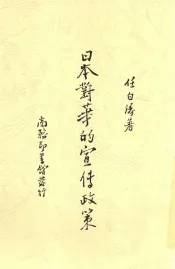 任白濤著
日本對華的宣傳政策
商務印書館發行